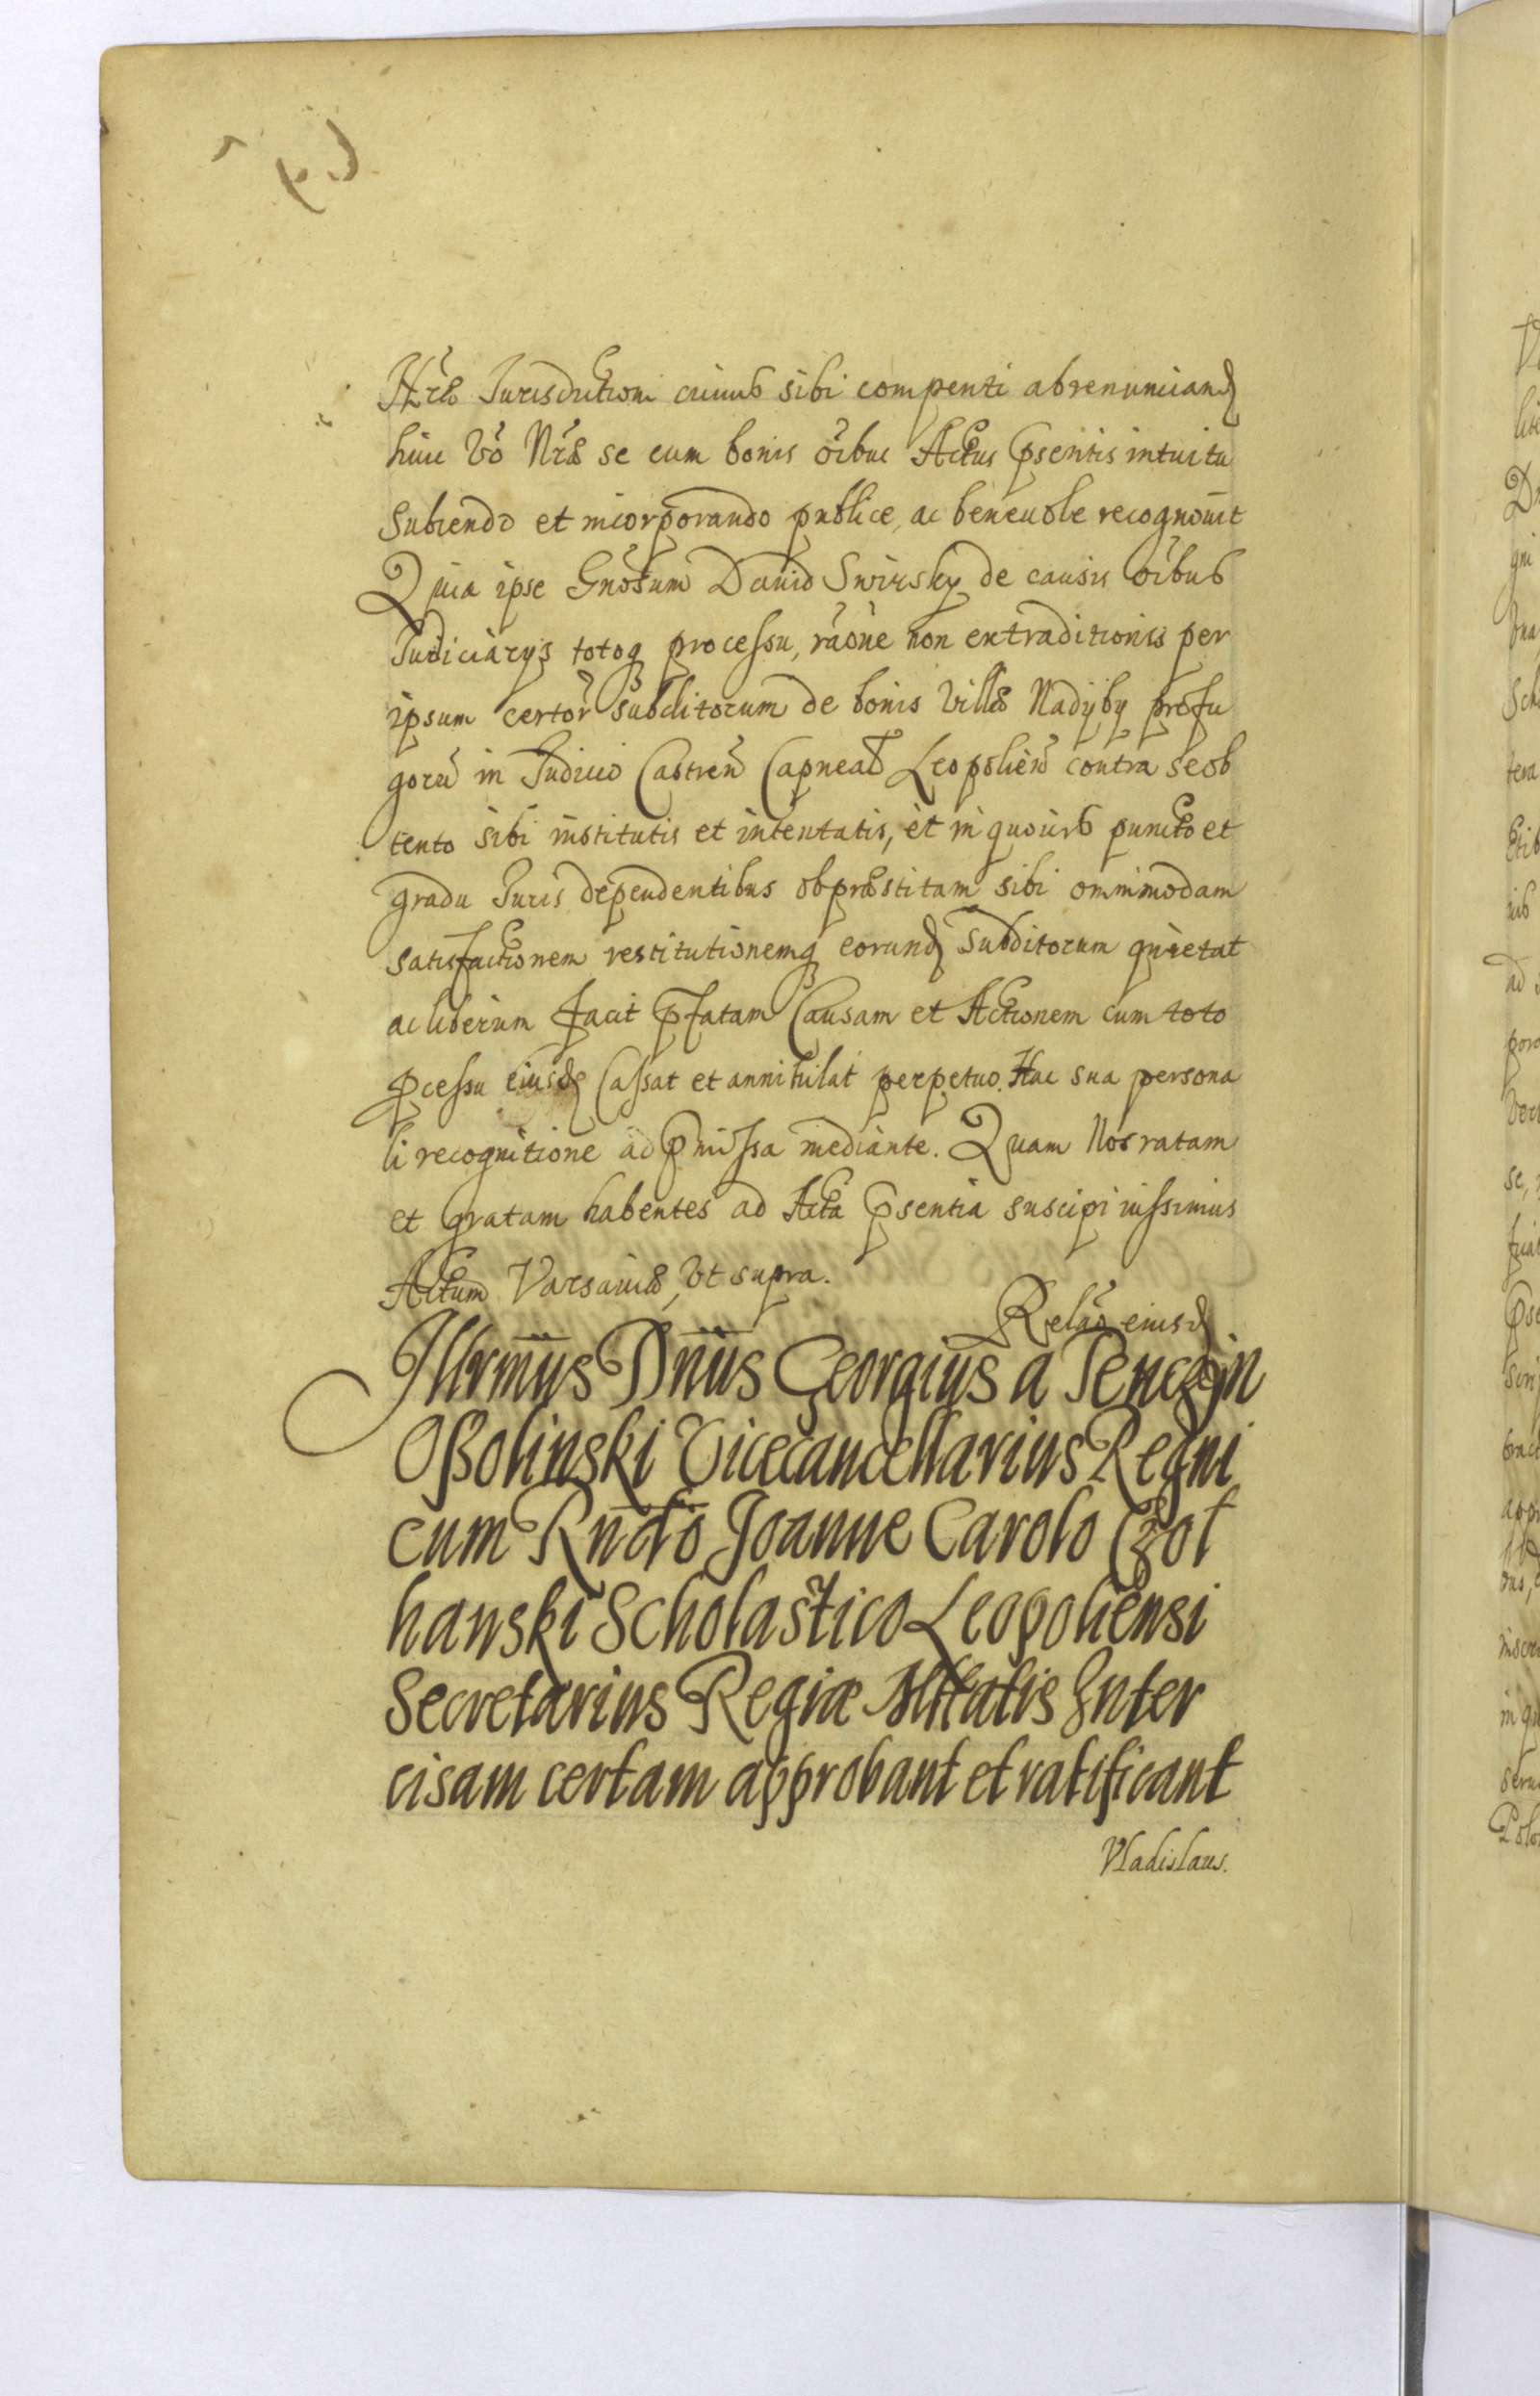 Nræ Jurisdictioni cuiuis sibi compenti abrenunciand
huic vo Nræ se cum bonis oibus Actus psentis intuitu
Subiendo et incorporando publice, ac beneuole recognouit
Quia ipse Gnosum Dauid Swirsky de causis oibus
Judiciarys totoq processu, raone non extraditionis per
ipsum certor subditorum de bonis Villæ Nadyby profu
gorū in Judicio Castren Capneali Leopolien contra se ob
tento sibi institutis et intentatis, et in quouis puncto et
gradu Juris dependentibus ob præstitam sibi omnimodam
satisfactionem restitutionemq eorund subditorum quietat
ac liberum facit pfatam Causam et Actionem cum toto
pcessu eiusd Cassat et annihilat perpetuo. Hac sua persona
li recognitione ad pmissa mediante. Quam Nos ratam
et gratam habentes ad Acta psentia suscipi iussimus
Actum Varsauiæ, vt supra.
Relao eiusd
Illrmus Dnus Georgius a Tenczyn
Oßolinski Vicecancellarius Regni
cum Rndo Joanne Carolo Czol
hanski Scholastico Leopoliensi
Secretarius Regiæ Mttatis Inter
cisam certam approbant et ratificant
Vladislaus.